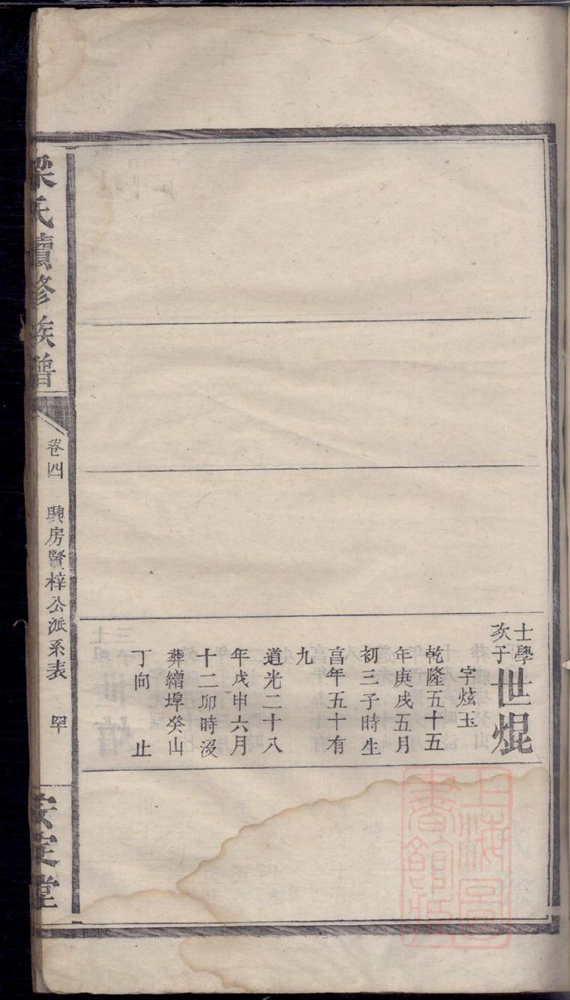 士學
次子
世焜
字炫玉
乾隆五十五
年庚戌五月
初三子時生
言年五十有
九
道光二十八
年戊申六月
十二卯時沒
葬繒埠癸山
丁向 止
梁氏續修族譜
卷四 興房賢梓公派系表
安定堂
上海圖書館藏